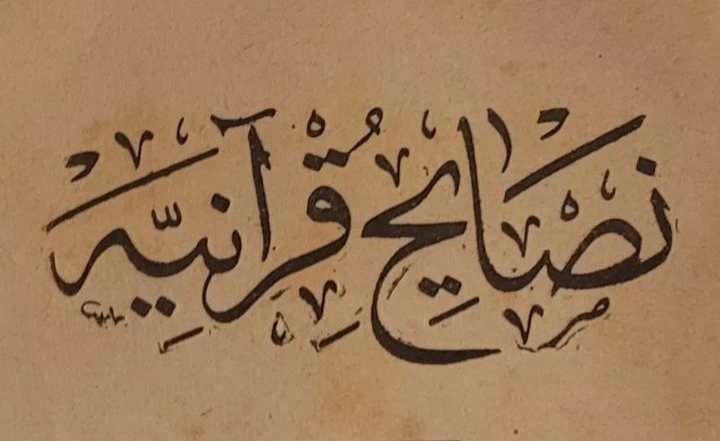 نَصَايِح قُرآنِيَّه